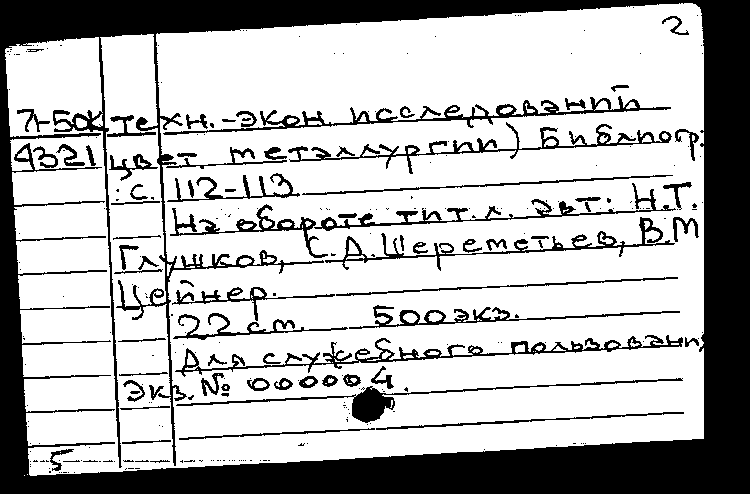 2
71-50к техн.-экон. исследований
4321 цвет. металлургии) Библиогр.:
: с. 112-113
На обороте тит. л. авт: Н.Т.
Глушков, С.Д. Шереметьев, В.М
Цейнер.
22 см. 500 экз.
Для служебного пользования
Экз. № 000004.
5